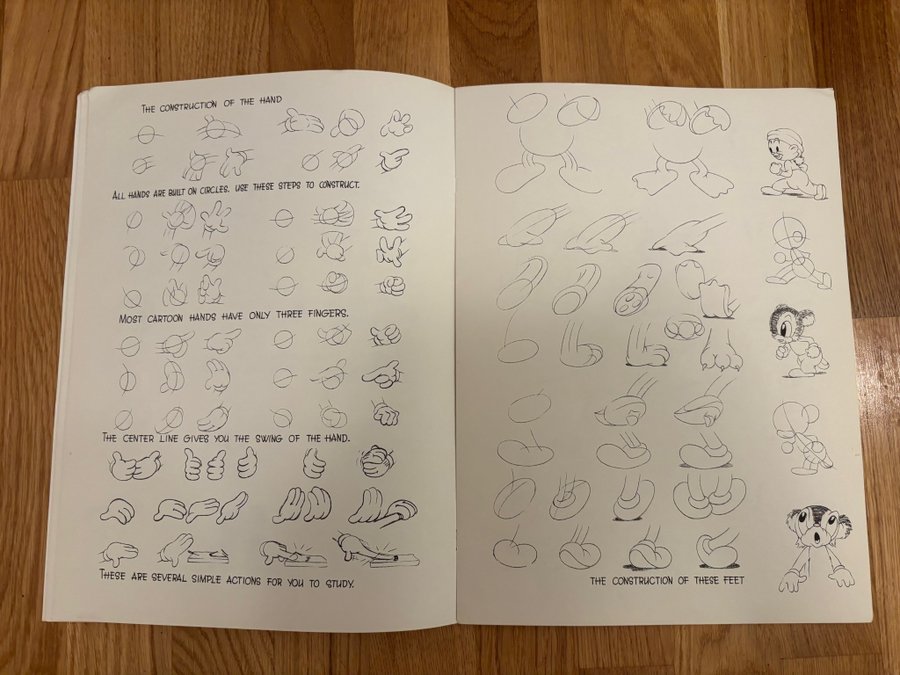 THE CONSTRUCTION OF THE HAND
ALL HANDS ARE BUILT ON CIRCLES. USE THESE STEPS TO CONSTRUCT.
MOST CARTOON HANDS HAVE ONLY THREE FINGERS.
THE CENTER LINE GIVES YOU THE SWING OF THE HAND.
THESE ARE SEVERAL SIMPLE ACTIONS FOR YOU TO STUDY.
THE CONSTRUCTION OF THESE FEET